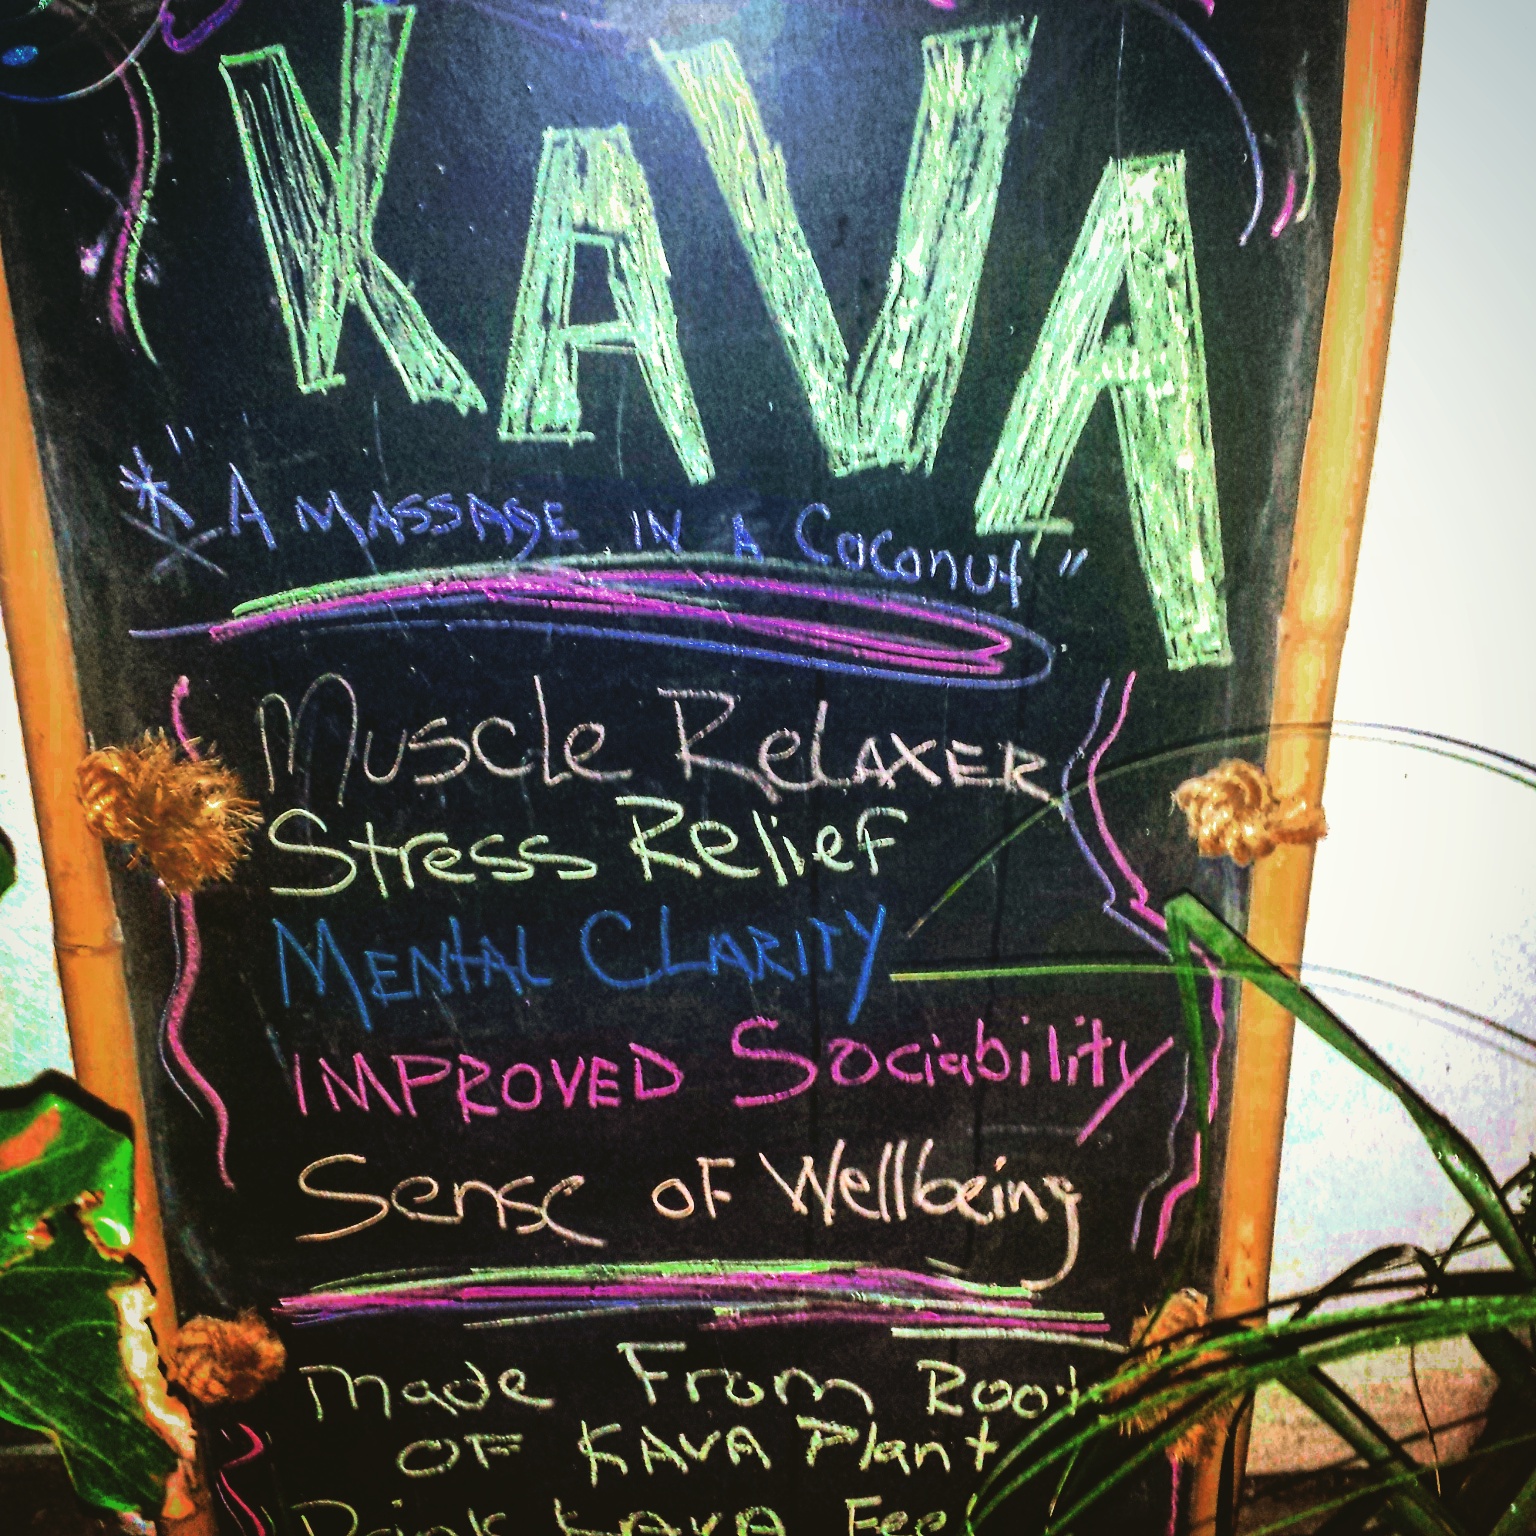 KAVA
* "A MASSAGE IN A Coconut"
Muscle RelAXER
Stress Relief
MENTAL CLARITY
IMPROVED Sociability
Sense oF Wellbeing
Made From Root
OF KAVA Plant
Drink KAVA Feel